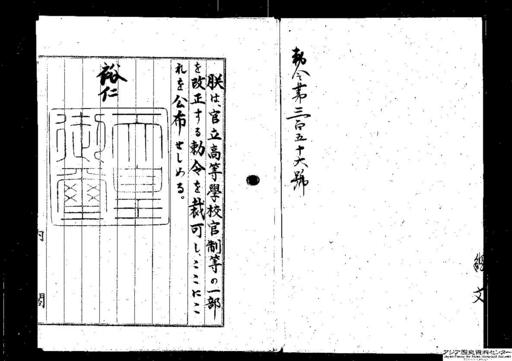 勅令第三百五十六號
朕は、官立高等學校官制等の一部
を改正する勅令を裁可し、ここにこ
れを公布せしめる。
裕仁
天皇
御璽
内閣
アジア歴史資料センター